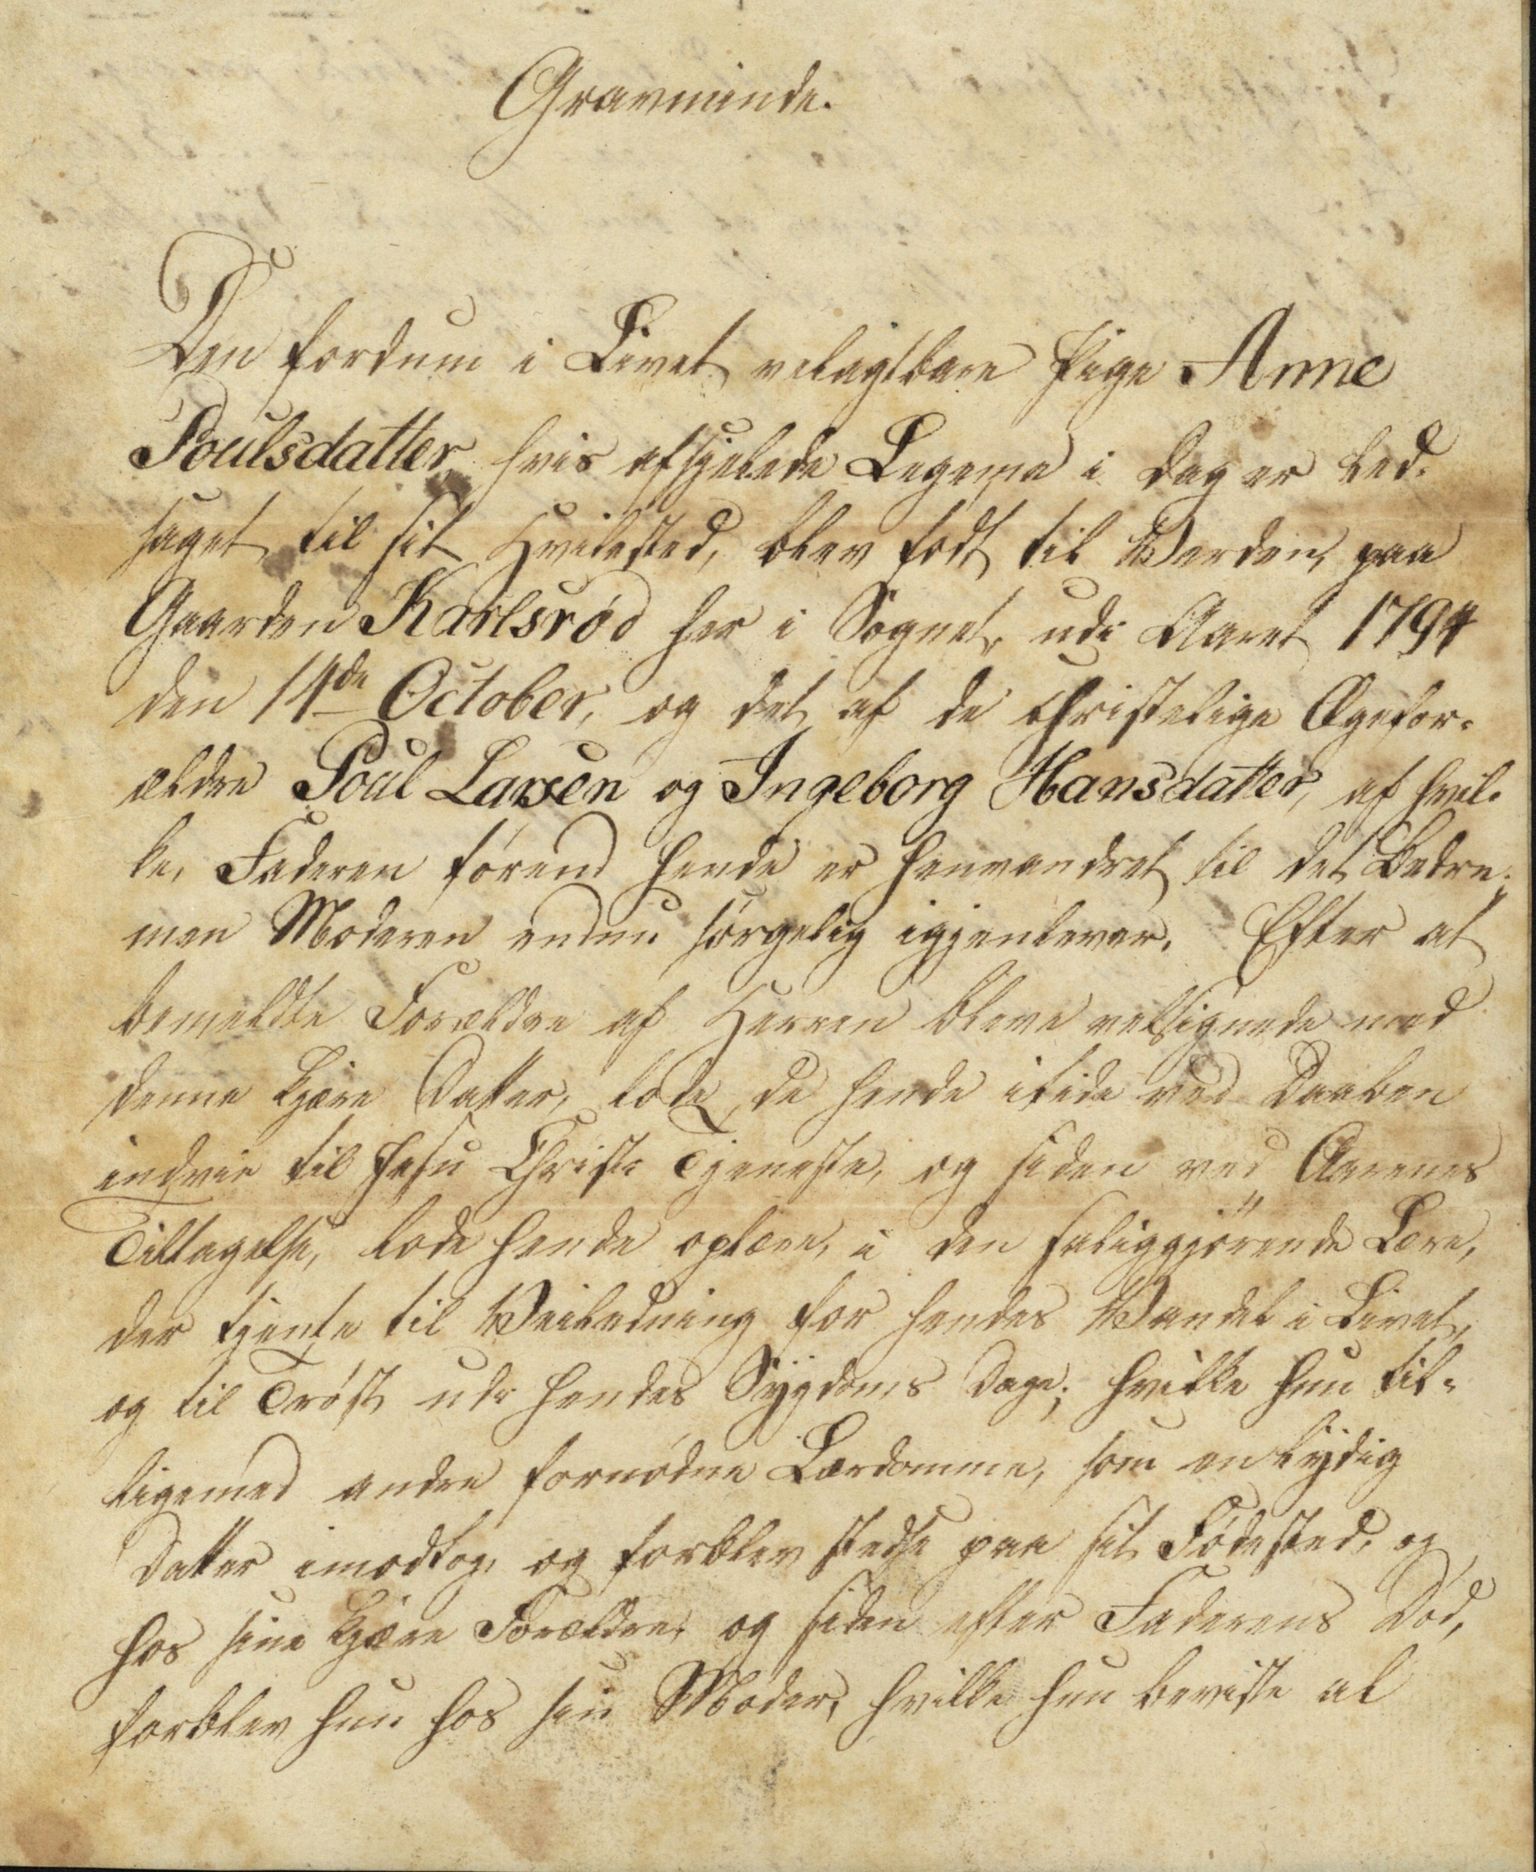 Gravminde.
Den fordum i Livet velagtbare Pige Anne
Poulsdatter hvis afsjelede Legeme i Dag er led-
saget til sit Hvilested, blev født til Verden, paa
Gaarden Karlsrød her i Sognet, udi Aaret 1794
den 14de October, og det af de christelige Ægefor-
ældre Poul Larsen og Ingeborg Hansdatter, af hvil-
ke, Faderen förend hende er henvandret til det Bedre;
men Moderen endnu sørgelig igjenlever. Efter at
bemeldte Forældre af Herren bleve velsignede med
denne kjære Datter, lode de hende itide ved Daaben
indvie til Jesu Christi Tjeneste, og siden ved Aarenes
Tiltagelse, lode hende oplære, i den saliggjörende Lære,
der tjente til Veiledning for hendes Vandel i Livet,
og til Trøst udi hendes Sÿgdoms Dage; hvilke hun til-
ligemed andre fornødne Lærdomme, som en lÿdig
Datter imodtog, og forblev stedse paa sit Födested, og
hos sine kjære Forældre, og siden efter Faderens Död,
forblev hun hos sin Moder, hvilke hun beviste al